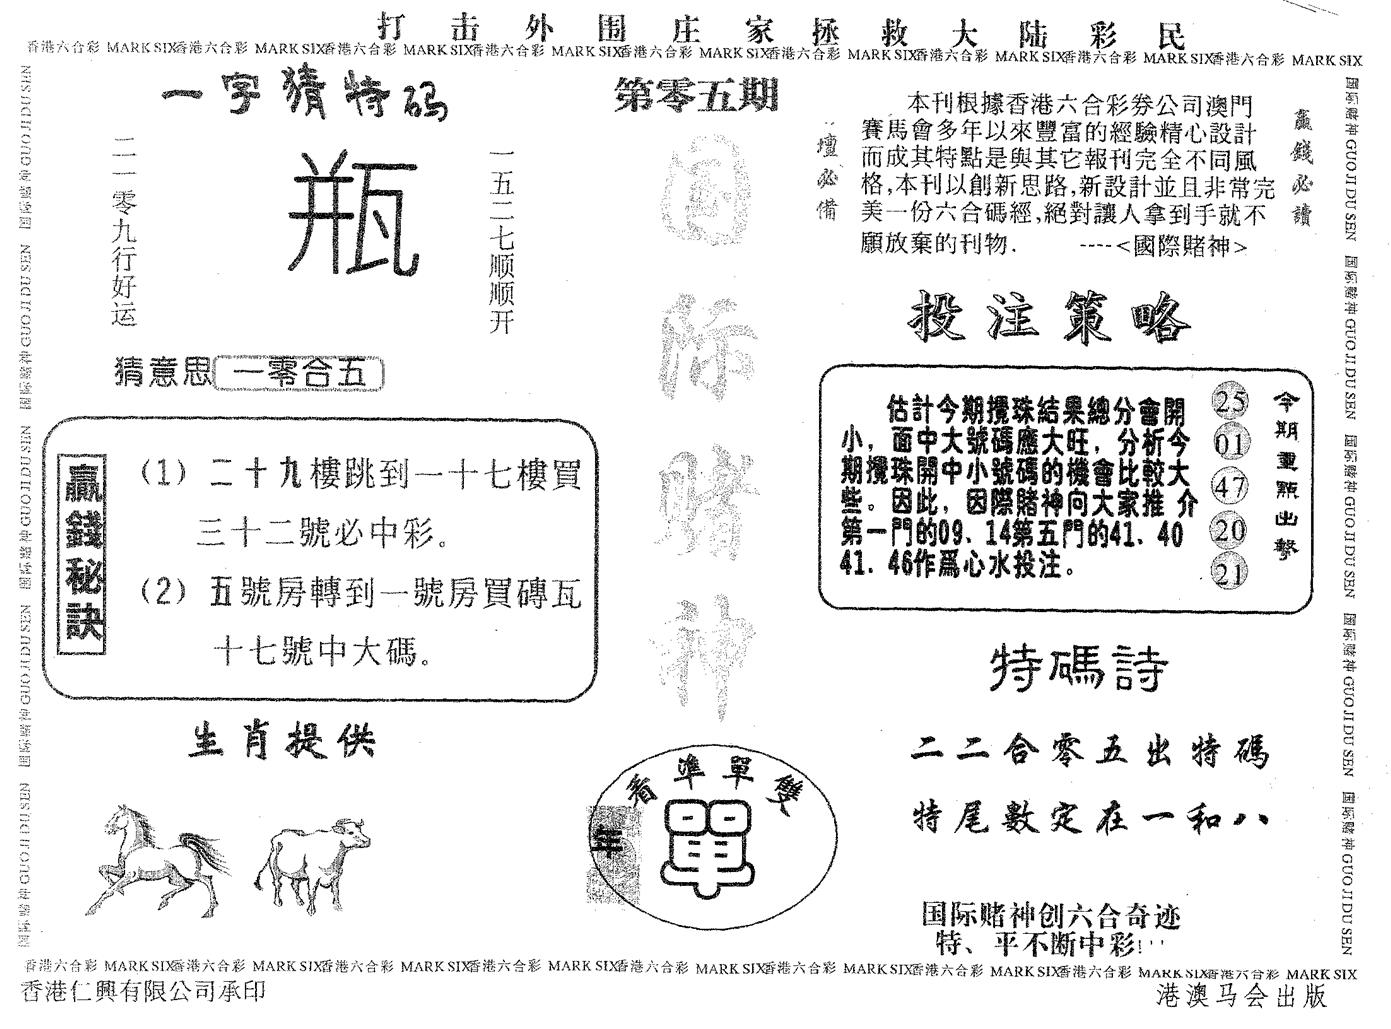 打击外围庄家拯救大陆彩民
香港六合彩 MARK SIX香港六合彩 MARK SIX香港六合彩 MARK SIX香港六合彩 MARK SIX香港六合彩 MARK SIX香港六合彩 MARK SIX香港六合彩 MARK SIX香港六合彩 MARK SIX香港六合彩 MARK SIX
一字猜特码
二一零九行好运
瓶
一五二七顺顺开
猜意思 一零合五
贏錢秘訣
(1) 二十九樓跳到一十七樓買
三十二號必中彩。
(2) 五號房轉到一號房買磚瓦
十七號中大碼。
生肖提供
第零五期
国际赌神
看準單雙
年
單
壇必備
本刊根據香港六合彩券公司澳門
賽馬會多年以來豐富的經驗精心設計
而成其特點是與其它報刊完全不同風
格,本刊以創新思路,新設計並且非常完
美一份六合碼經,絕對讓人拿到手就不
願放棄的刊物. ----<國際賭神>
贏錢必讀
投注策略
估計今期攪珠結果總分會開
小，面中大號碼應大旺，分析今
期攪珠開中小號碼的機會比較大
些。因此，因際賭神向大家推 介
第一門的09．14第五門的41．40
41．46作爲心水投注。
25
01
47
20
21
今期重點出擊
特碼詩
二二合零五出特碼
特尾數定在一和八
国际赌神创六合奇迹
特、平不断中彩!
国际赌神 GUO JI DU SEN 国际赌神 GUO JI DU SEN 国际赌神 GUO JI DU SEN 国际赌神 GUO JI DU SEN 国际赌神 GUO JI DU SEN
香港六合彩 MARK SIX香港六合彩 MARK SIX香港六合彩 MARK SIX香港六合彩 MARK SIX香港六合彩 MARK SIX香港六合彩 MARK SIX香港六合彩 MARK SIX香港六合彩 MARK SIX香港六合彩 MARK SIX
香港仁興有限公司承印
港澳马会出版